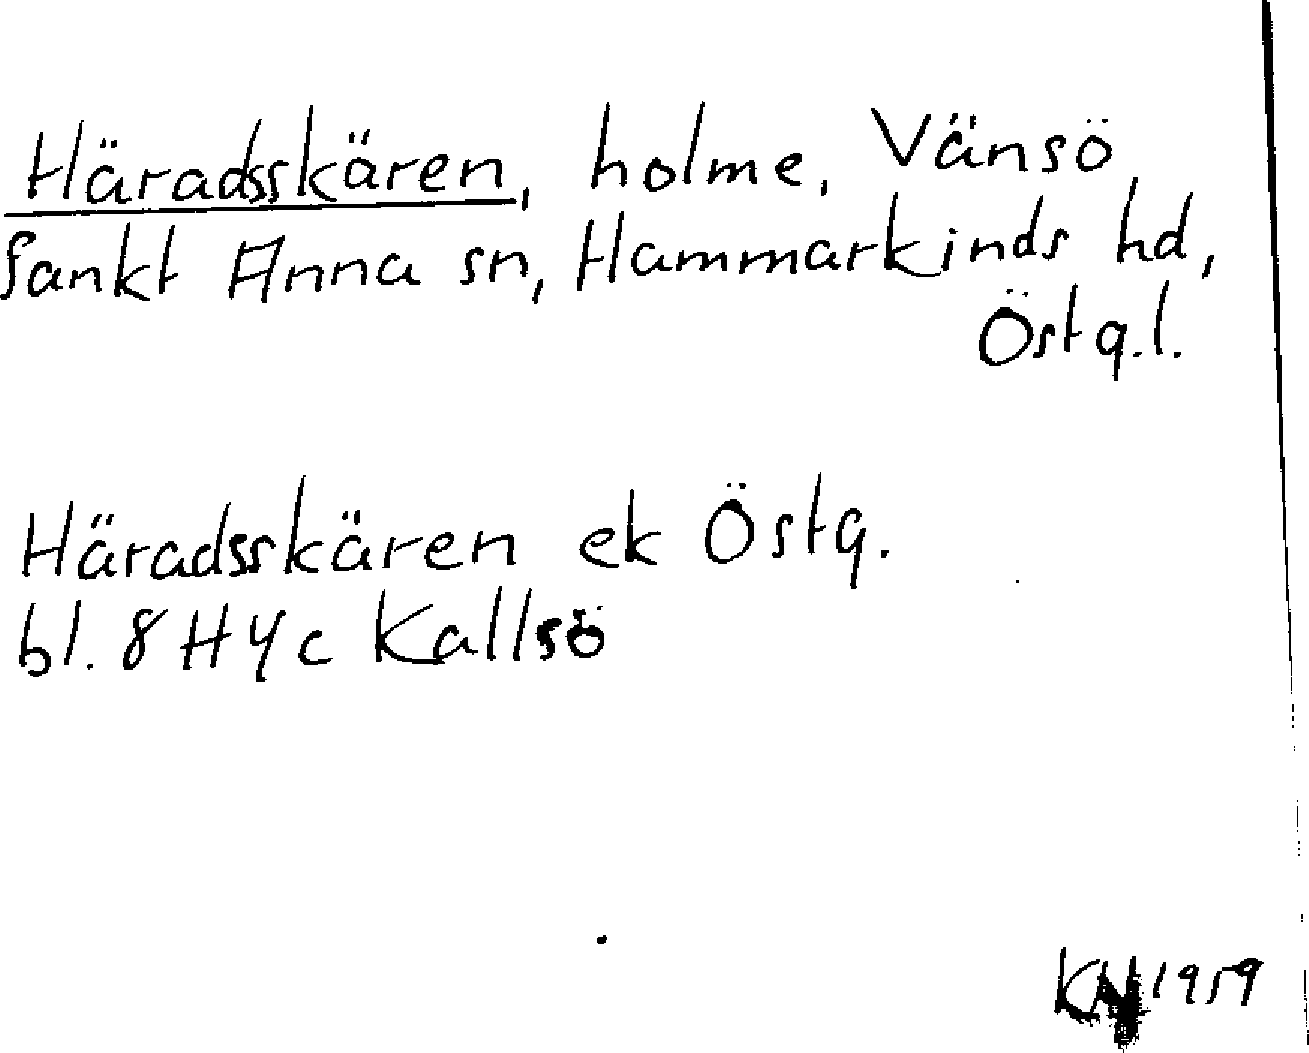 Häradsskären, holme, Vänsö
Sankt Anna sn, Hammarkinds hd,
Östg.l.
Häradsskären ek Östg.
bl. 8 H 4c Kallsö
1959